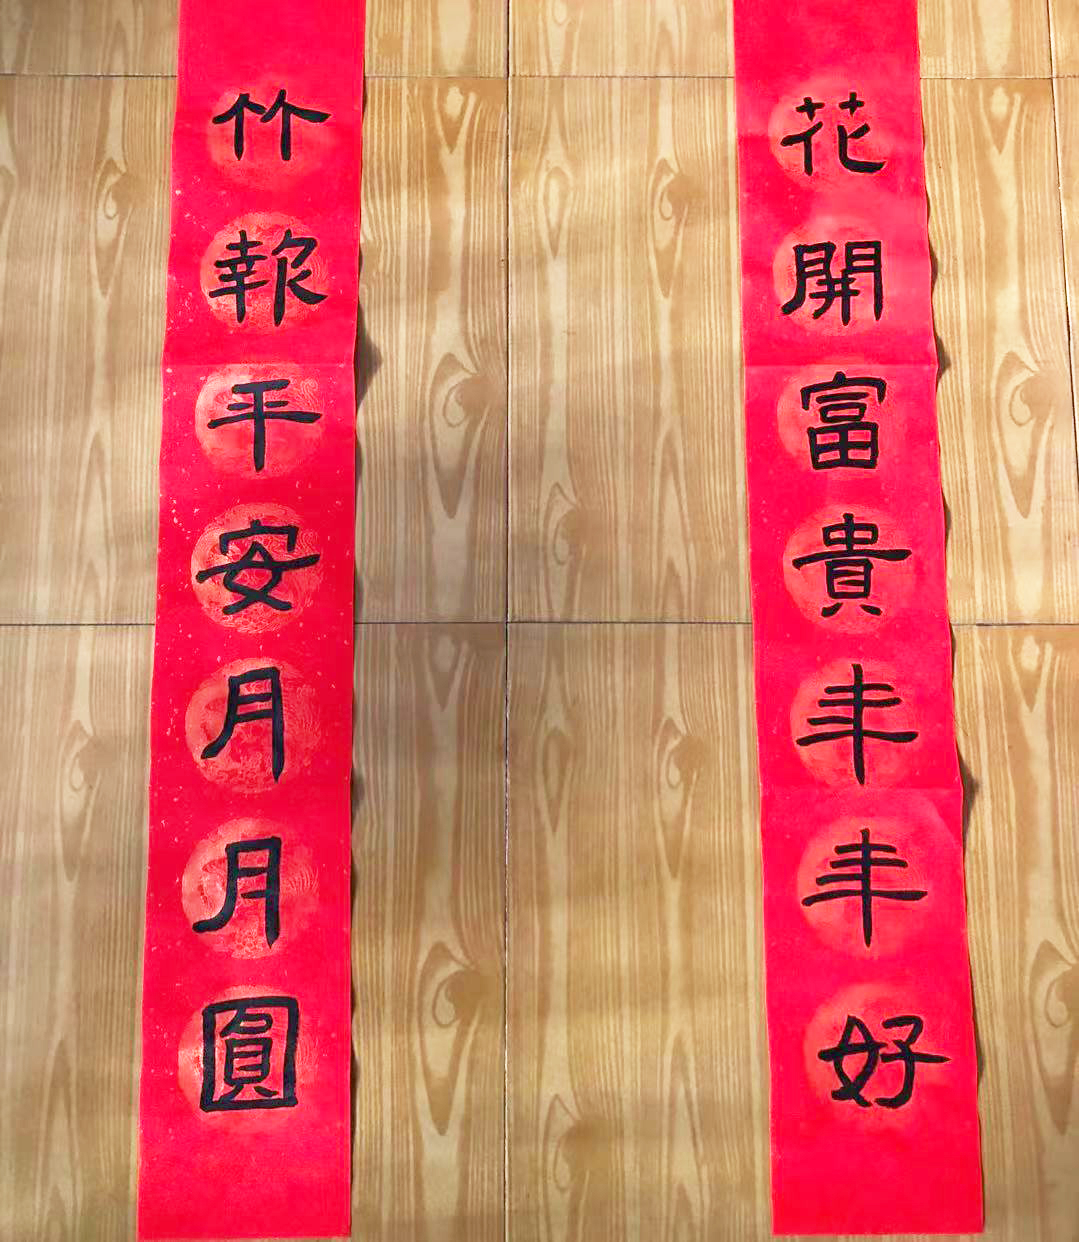 花開富貴年年好
竹報平安月月圓